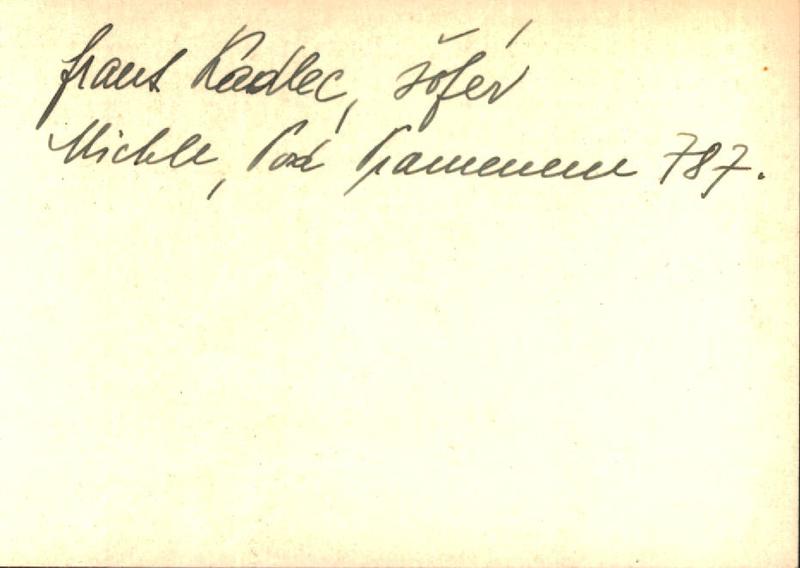 Frant Kadlec, šofér
Michle, Pod Pramenem 787.